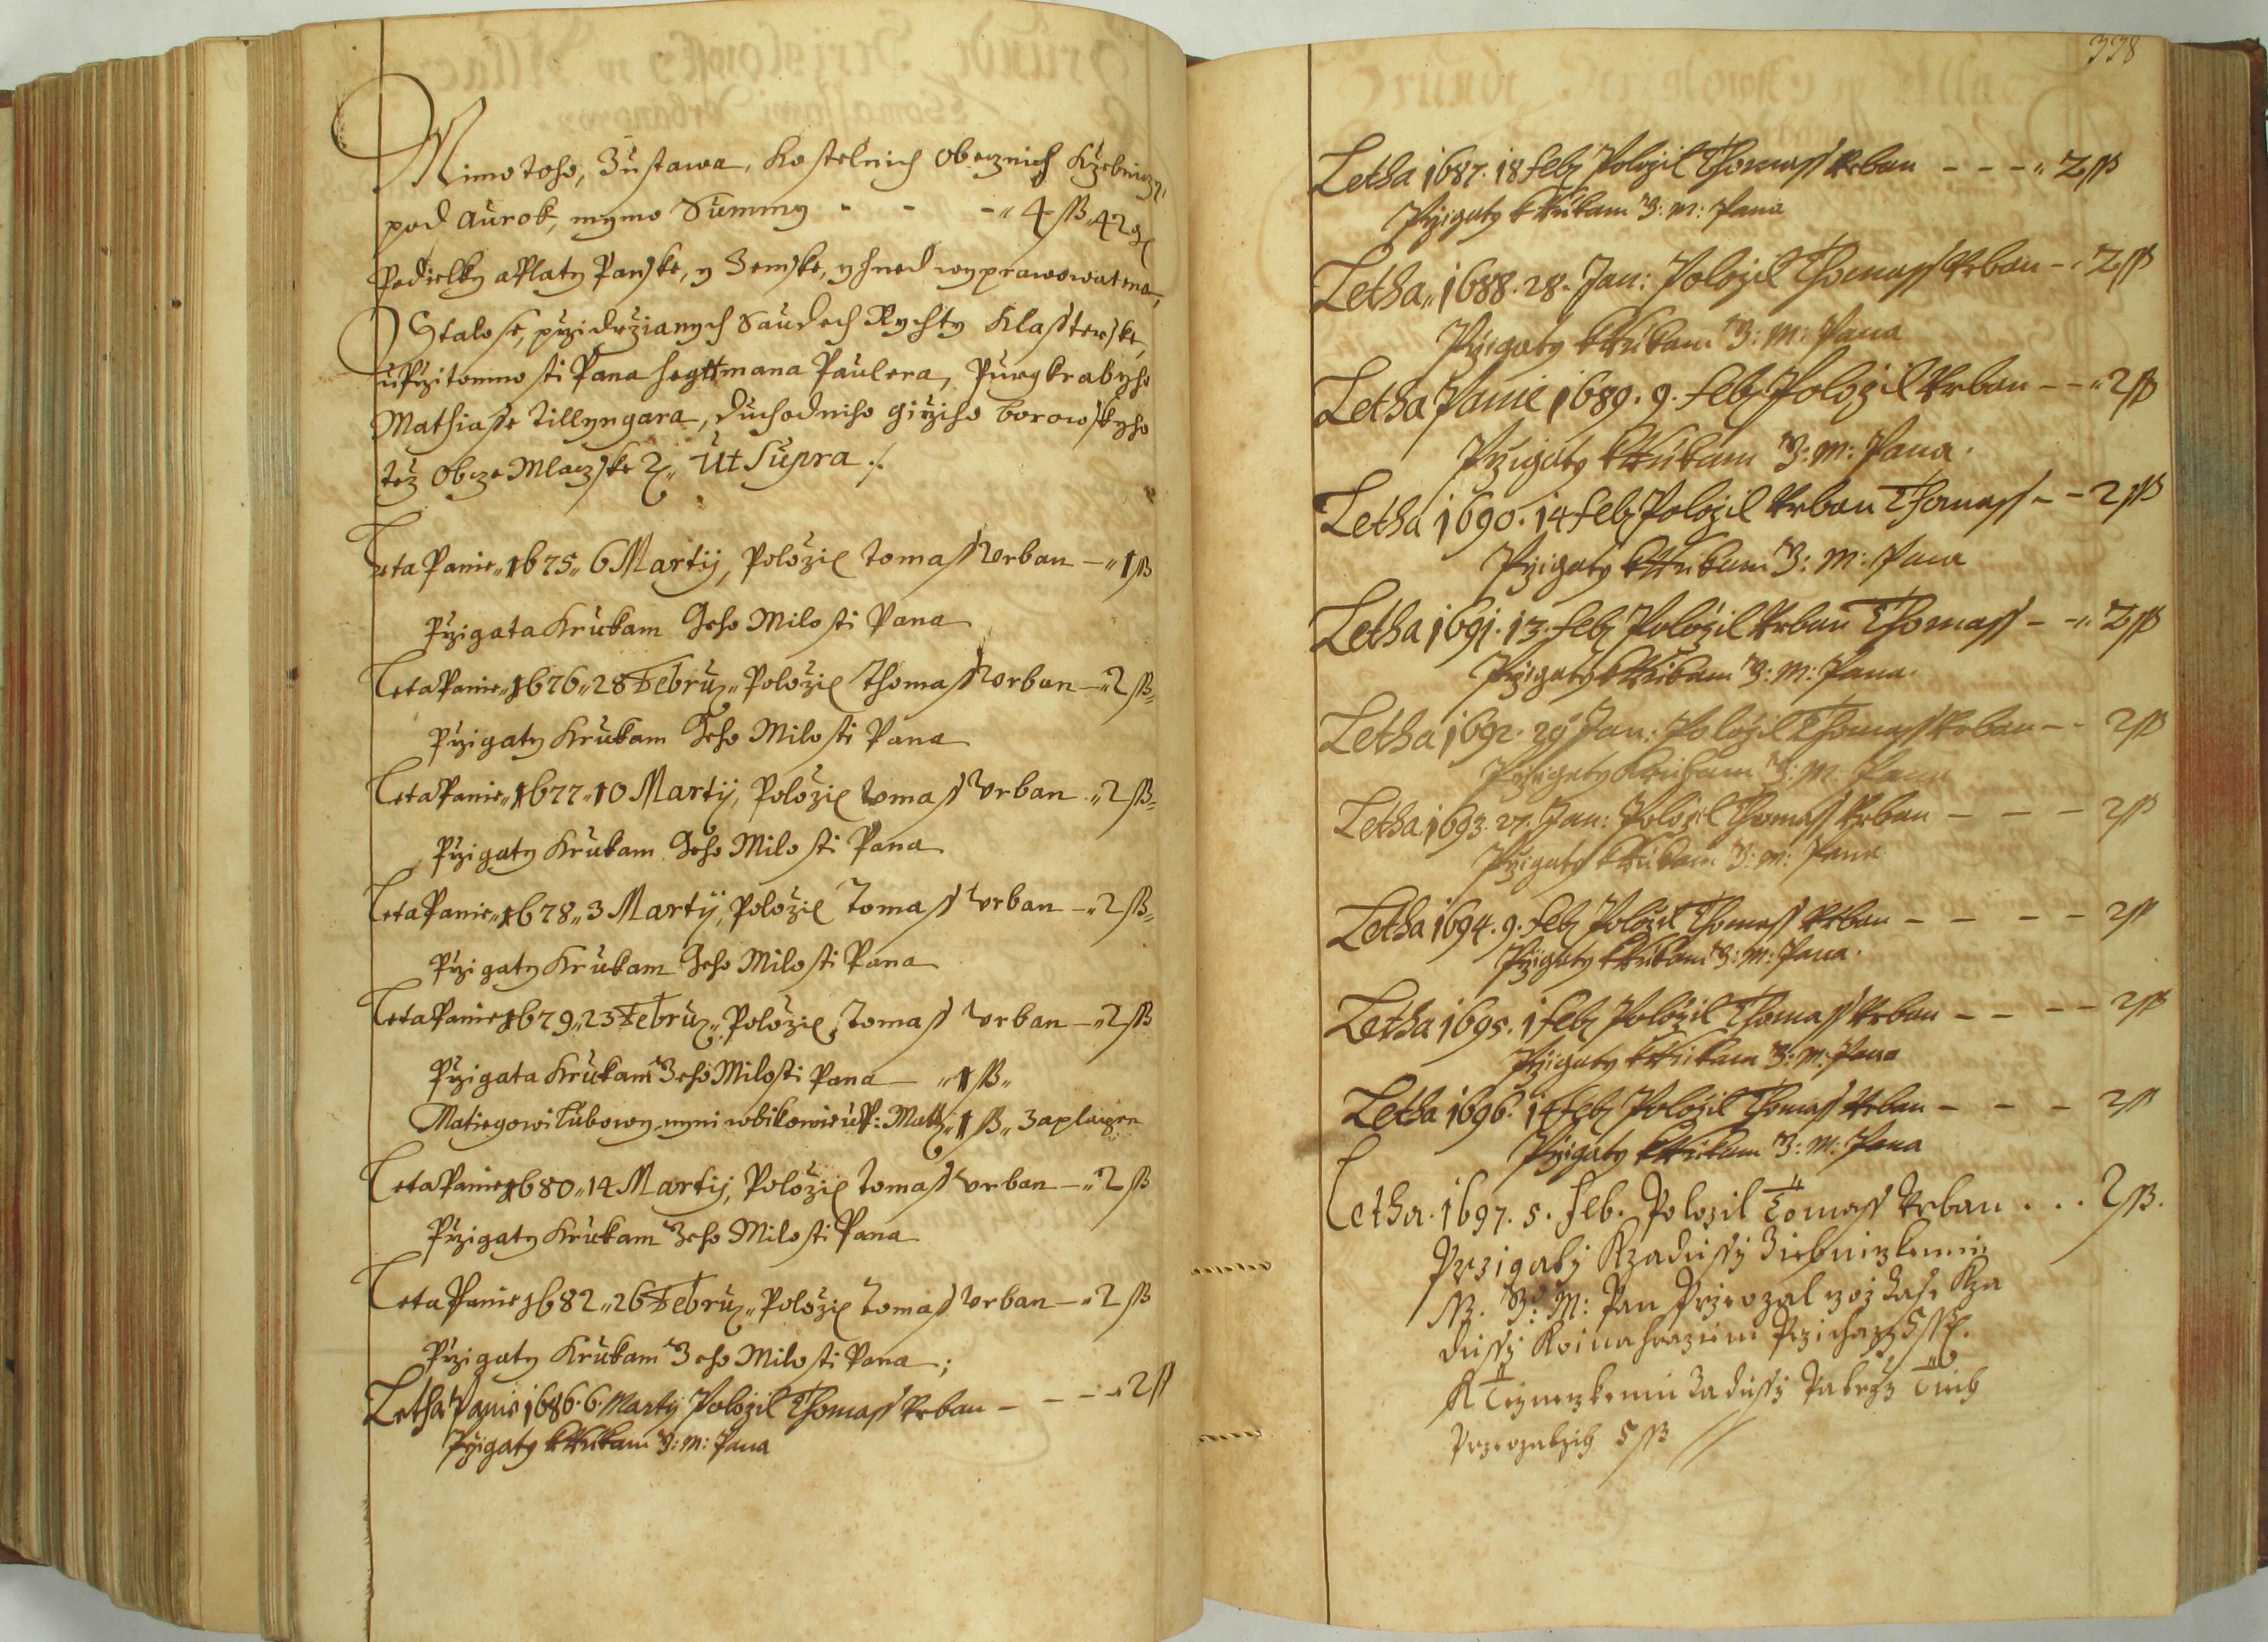 Mimo toho, Zustawa, Kostelnich Obecznich Krzebniczy
pod Aurok, mymo Summy - - -„ 4 ß„ 42 gr
Podielky a Platy Panske, y Zemske, yhned wyprawowat ma,
Stalo se, przi drzianych Saudech Rychty Klassterske,
u Przitomnosti Pana Hegttmana Paulera, Purgkrabyho
Mathiasse Tillyngara, Duchodniho Girziho Borowskyho
téz Obcze Mlaczske Ut Supra ./.
Leta Panie„ 1675„ 6 Martij, Položil Tomass Urban —„ 1 ß
Przigata Krukam Geho Milosti Pana
Leta Panie„ 1676„ 28 Februa„ Položil Thomass Urban —„ 2 ß„
Przigaty Krukam Geho Milosti Pana
Leta Panie„ 1677„ 10 Martij, Položil Tomass Urban „ 2 ß„
Przigaty Krukam Geho Milosti Pana
Leta Panie„ 1678„ 3 Martij, Položil Tomass Urban —„ 2 ß„
Przigaty Krukam Geho Milosti Pana
Leta Panie 1679„ 23 Februa„ Položil Tomass Urban —„ 2 ß
Przigata Krukam Jeho Milosti Pana — „ 1 ß„
1 ß„
Leta Panie 1680„ 14 Martij, Položil Tomass Urban —„ 2 ß
Przigaty Krukam Jeho Milosti Pana
Leta Panie 1682„ 26 Februa„ Položil Tomass Urban —„ 2 ß
Przigaty Krukam Jeho Milosti Pana ;
Letha Panie 1686. 6. Martij Položil Thomass Urban — — —„ 2 ß
Przigaty k Rukam J: M: Pana
338
Letha 1687. 18 Feb Položil Thomass Urban - - -„ 2 ß
Przigaty k Rukam J: M: Pana
Letha„ 1688. 28. Jan: Položil Thomass Urban -„ 2 ß
Przigaty k Rukam J: M: Pana
Letha Panie 1689. 9. Feb Položil Urban - -„ 2 ß
Przigaty k Rukam J: M: Pana.
Letha 1690. 14 Feb Položil Urban Thomass - - 2 ß
Przigaty k Rukam J: M: Pana
Letha 1691. 13. Feb Položil Urban Thomass - -„ 2 ß
Przigaty k Rukam J: M: Pana.
Letha 1692. 29 Jan: Položil Thomass Urban - - 2 ß
Przigaty k Rukam J: M: Pana
Letha 1693. 27. Jan: Položil Thomass Urban - - - 2 ß
Przigaty k Rukam J: M: Pana
Letha 1694. 9. Feb Položil Thomass Urban - - - - 2 ß
Przigaty k Rukam J: M: Pana.
Letha 1695. 1 Feb Položil Thomass Urban - - - - 2 ß
Przigaty k Rukam J: M: Pana
Letha 1696. 14 Feb Položil Thomass Urban - - - 2 ß
Przigaty k Rukam J: M: Pana
Letha. 1697. 5. Feb. Polozil Tomass Urban . . . 2 ß.
Przigaty
J: M: Pan
5 ß
5 ß